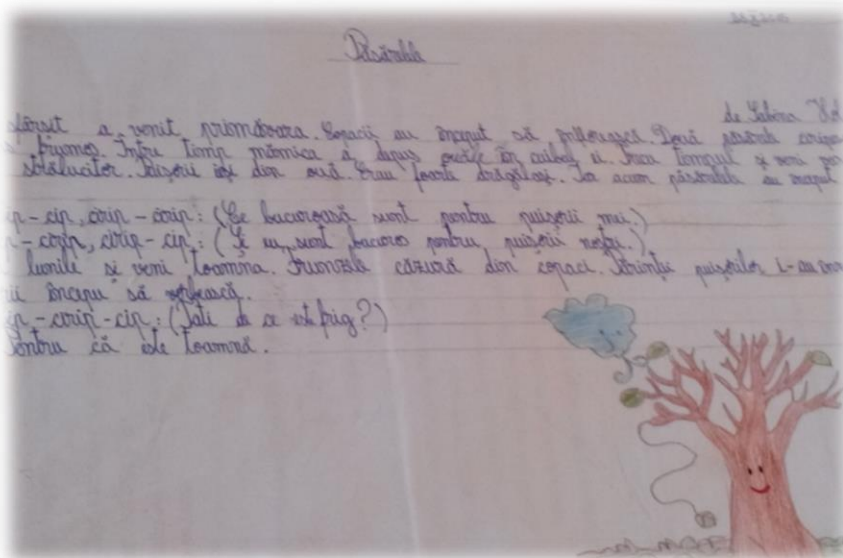 Păsărelele
de Sabina
sfârșit a venit primăvara. Copacii au început să înflorească. Două păsărele
frumos. Între timp mămica a depus ouăle în cuibul ei. Trecu timpul și veni
strălucitor. Puișorii ieși din ouă. Erau foarte drăgălași. Iar acum păsărelele au început
cip, cirip - cirip: (Ce bucuroasă sunt pentru puișorii mei.)
cirip, cirip - cip: (Și eu sunt bucuros pentru puișorii noștri.)
lunile și veni toamna. Frunzele căzură din copaci. Părinții puișorilor i-au
începu să vorbească.
cirip - cip: (Tati de ce este frig?)
Pentru că este toamnă.